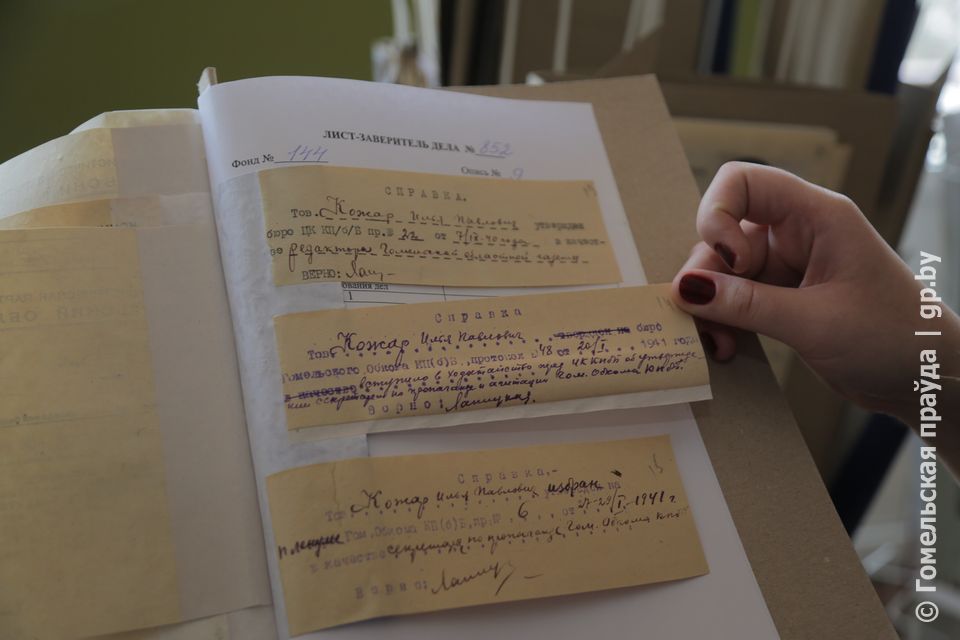 ЛИСТ-ЗАВЕРИТЕЛЬ ДЕЛА № 852
Фонд № 144
Опись № 9
СПРАВКА.
Тов. Кожар Илья Павлович утвержден
бюро ЦК КП/б/Б пр.№ 22 от 7/IX-40 года в качест-
ве редактора Гомельской областной газеты
ВЕРНО:
ования дел
1
14
Справка
Тов. Кожар Илья Павлович утвержден на бюро
Гомельского Обкома КП(б)Б, протокол № 48 от 20/I 1941 года
в качестве вступило в ходатайство пред ЦК КПбБ об утвержде-
нии секретарем по пропаганде и агитации Гом. Обкома КПбБ.
Верно: Лапицкая.
15
Справка.-
Тов. Кожар Илья Павлович избран на
пленуме Гом.Обкома КП(б)Б, пр.№ 6 от 27-29/I 1941 г.
в качестве секретаря по пропаганде Гом. Обкома КПбБ
Верно:
© Гомельская праўда | gp.by